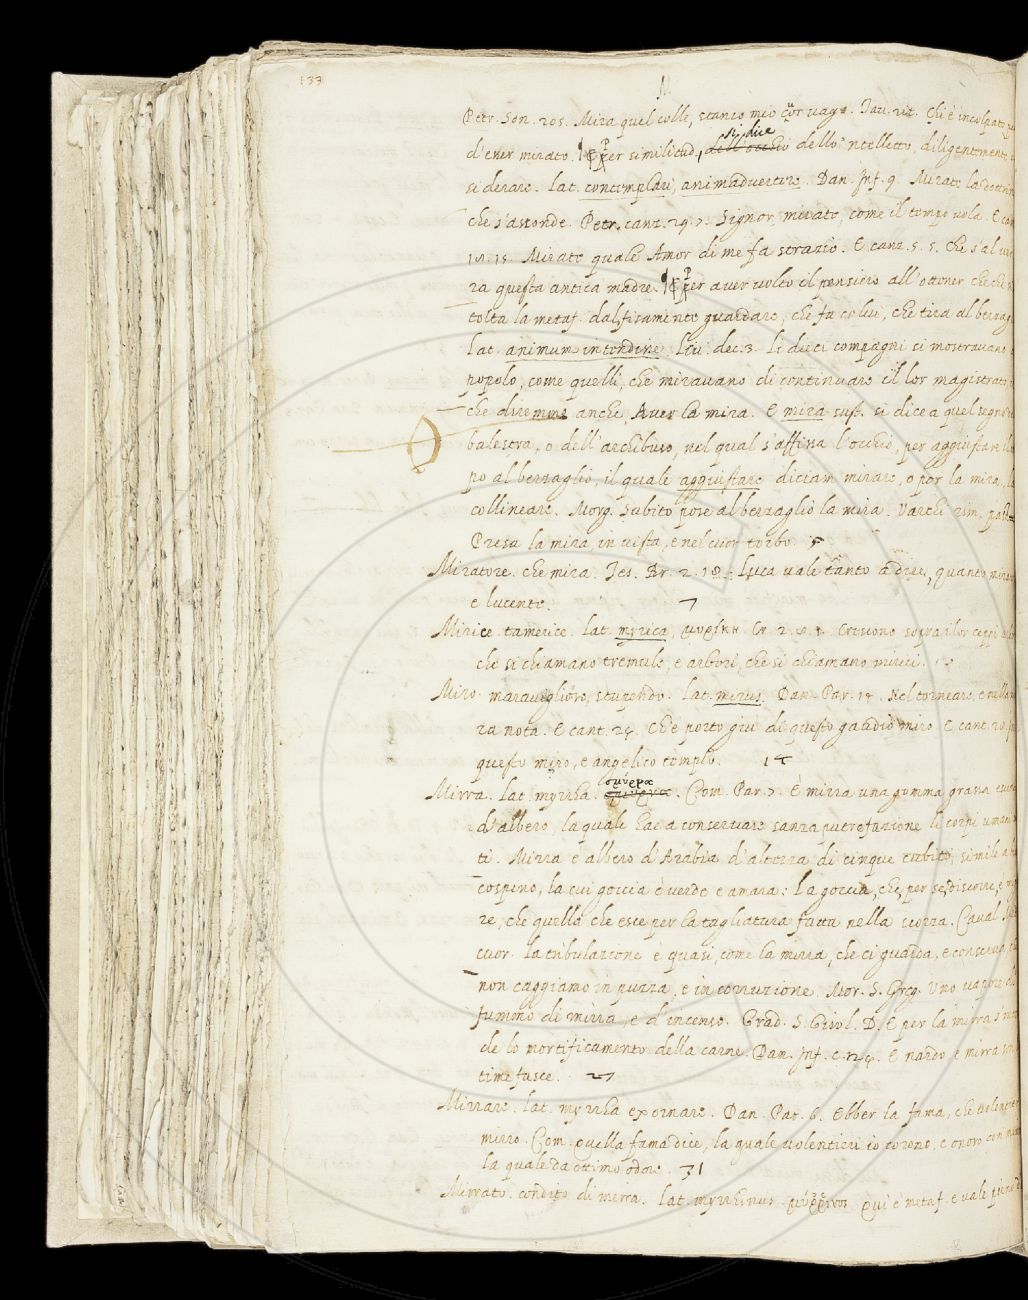 133
M
Petr. Son. 205. Mira quel colle, stanco mio cor vago. Tav. rit. Chi è incolpato
d'esser mirato. ¶ Per similitud. si dice dell'occhio dello 'ntelletto, diligentemente
siderare. Lat. contemplari, animadvertere. Dan. Inf. 9. Mirate la dottrina
che s'asconde. Petr. canz. 29. 7. Signor, mirate, come il tempo vola. E can
18. 15. Mirate quale Amor di me fa strazio. E canz. 5. 5. Che s'al
ra questa antica madre. ¶ Per aver volto il pensiero all'ottener che che
tolta la metaf. dal fisamente guardare, che fa colui, che tira al berzag
Lat. animum intendere. Liv. dec. 3. Li dieci compagni si mostravano
popolo, come quelli, che miravano di continuare il lor magistrato
che diremmo anche, Aver la mira. E mira sust. si dice a quel segno
balestra, o dell'archibuso, nel qual s'affissa l'occhio, per aggiustare il
po al berzaglio, il quale aggiustare diciam mirare, o por la mira.
collineare. Morg. Subito pose al berzaglio la mira. Varchi rim. past.
Presa la mira, in vista, e nel cuor torbo. 5
Miratore. che mira. Tes. Br. 2. 18. Luca vale tanto a dire, quanto
e lucente. 7
Mirice. tamerice. Lat. myrica, μυρίκη Cr. 2. 8. Crescono sopra i lor ceppi
che si chiamano tremule, e arbori, che si chiamano mirici.
Miro. maraviglioso, stupendo. Lat. mirus. Dan. Par. 14. Nel torneare, e nella
ra nota. E cant. 24. Che porto giù di questo gaudio miro E cant. 28.
questo miro, e angelico templo. 14
Mirra. Lat. myrrha. σμύρα. Com. Par. 7. È mirra una gomma grassa
d'albero, la quale hae a conservare sanza putrefazione li corpi uman
ti. Mirra è albero d'Arabia d'altezza di cinque cubiti, simile a
cospino, la cui goccia è verde e amara: la goccia, che per se discorre, è
re, che quella che esce per la tagliatura fatta nella scorza. Caval.
cuor. la tribulazione è quasi, come la mirra, che ci guarda, e conserva,
non caggiamo in puzza, e in corruzione. Mor. S. Greg. Uno vapore
fummo di mirra, e d'incenso. Grad. S. Girol. D. E per la mirra s'inten
de lo mortificamento della carne. Dan. Inf. c. 24. E nardo e mirra son
time fasce. 27
Mirrare. Lat. myrrha exornare. Dan. Par. 6. Ebber la fama, che volentier
mirro. Com. Quella fama dice, la quale volentieri io corono, e onoro con
la quale dà ottimo odore. 31
Mirrato. condito di mirra. Lat. myrrhinus. μύρρινος qui è metaf. e vale